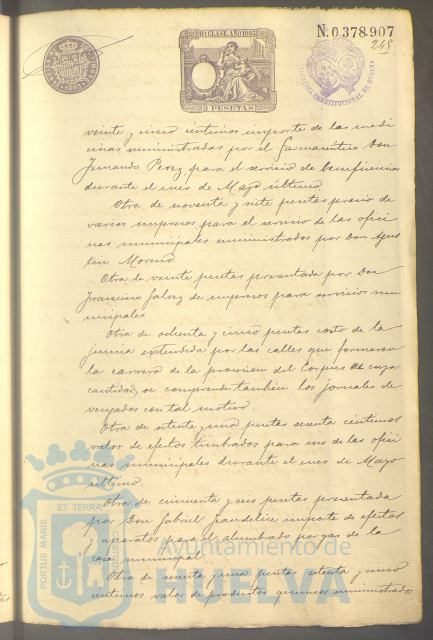 11ª CLASE AÑO 1893
2 PESETAS
Nº 0.378.907
248
ALCALDIA CONSTITUCIONAL DE HUELVA
veinte y cinco centimos importe de las medi
cinas suministradas por el farmaceutico Don
Fernando Perez para el servicio de beneficencia
durante el mes de Mayo último
Otra de noventa y siete pesetas precio de
varios impresos para el servicio de las ofici
nas municipales suministrados por Don Agus
tin Moreno
Otra de veinte pesetas presentada por Don
Francisco de impresos para servicios mu
nicipales
Otra de ochenta y cinco pesetas costo de la
juncia extendida por las calles que formaron
la carrera de la procesion del Corpus en cuya
cantidad se comprende tambien los jornales de
vengados con tal motivo.
Otra de setenta y una pesetas sesenta centimos
valor de efectos timbrados para uso de las ofici
nas municipales durante el mes de Mayo
último
Otra de cincuenta y seis pesetas presentada
por Don Gabriel importe de efectos
y aparatos para el alumbrado por gas de la
casa municipal
Otra de sesenta y una pesetas setenta y cinco
centimos valor de productos quimicos suministrados
PORTUS MARIS ET TERRAE
Ayuntamiento de
HUELVA